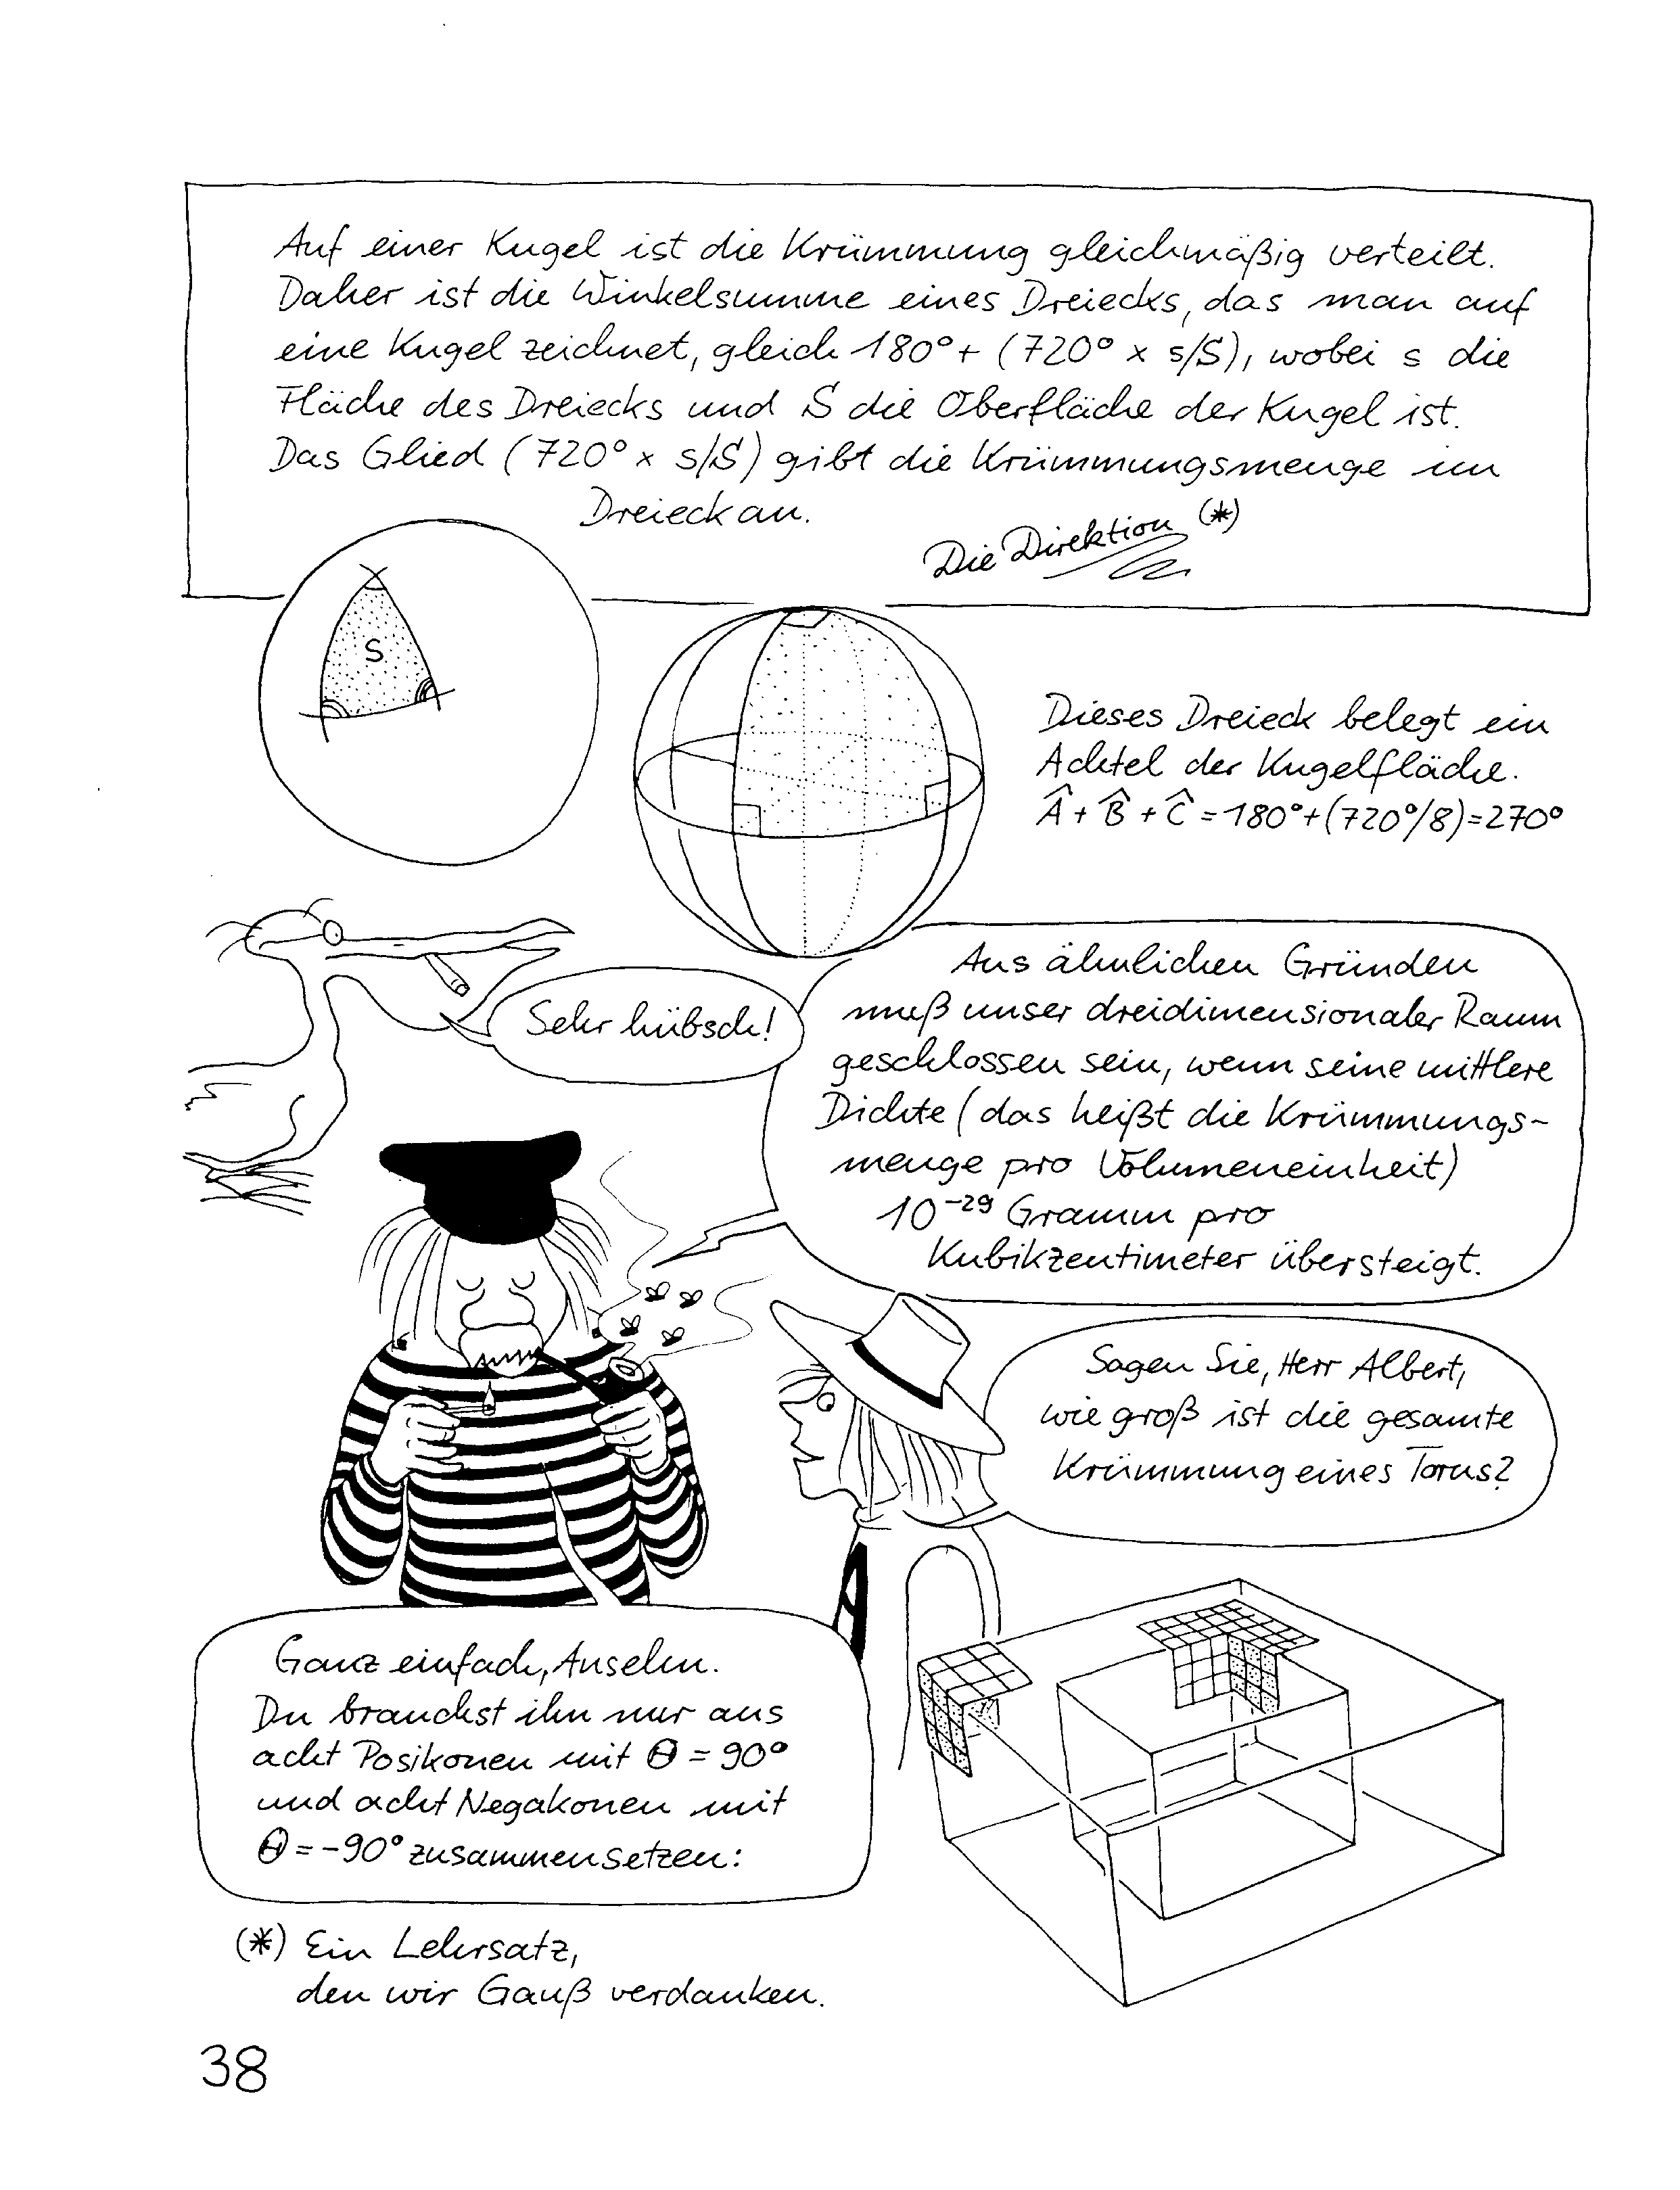 Auf einer Kugel ist die Krümmung gleichmäßig verteilt.
Daher ist die Winkelsumme eines Dreiecks, das man auf
eine Kugel zeichnet, gleich 180° + (720° x s/S), wobei s die
Fläche des Dreiecks und S die Oberfläche der Kugel ist.
Das Glied (720° x s/S) gibt die Krümmungsmenge im
Dreieck an.
Die Direktion (*)
S
Dieses Dreieck belegt ein
Achtel der Kugelfläche.
Â + B̂ + Ĉ = 180° + (720°/8) = 270°
Sehr hübsch!
Aus ähnlichen Gründen
muß unser dreidimensionaler Raum
geschlossen sein, wenn seine mittlere
Dichte (das heißt die Krümmungs-
menge pro Volumeneinheit)
10⁻²⁹ Gramm pro
Kubikzentimeter übersteigt.
Sagen Sie, Herr Albert,
wie groß ist die gesamte
Krümmung eines Torus?
Ganz einfach, Anselm.
Du brauchst ihn nur aus
acht Posikonen mit Θ = 90°
und acht Negakonen mit
Θ = -90° zusammensetzen:
(*) Ein Lehrsatz,
den wir Gauß verdanken.
38